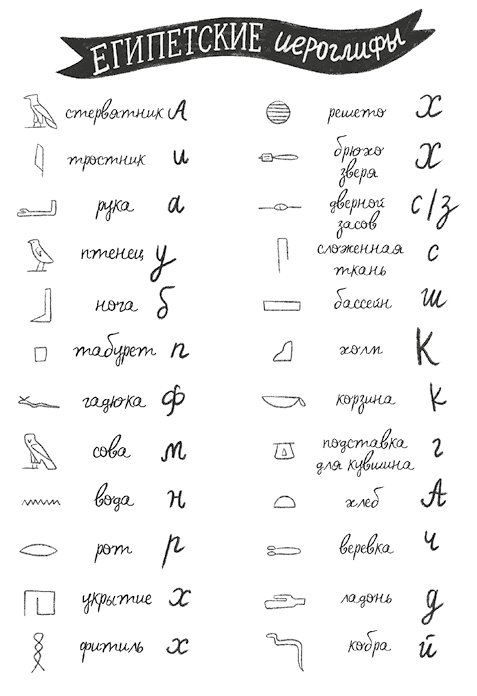 ЕГИПЕТСКИЕ ИЕРОГЛИФЫ
стервятник А
тростник и
рука а
птенец у
нога б
табурет п
гадюка ф
сова м
вода н
рот р
укрытие х
фитиль х
решето х
брюхо
зверя х
дверной
засов с/з
сложенная
ткань с
бассейн ш
холм К
корзина к
подставка
для кувшина г
хлеб А
веревка ч
ладонь д
кобра й